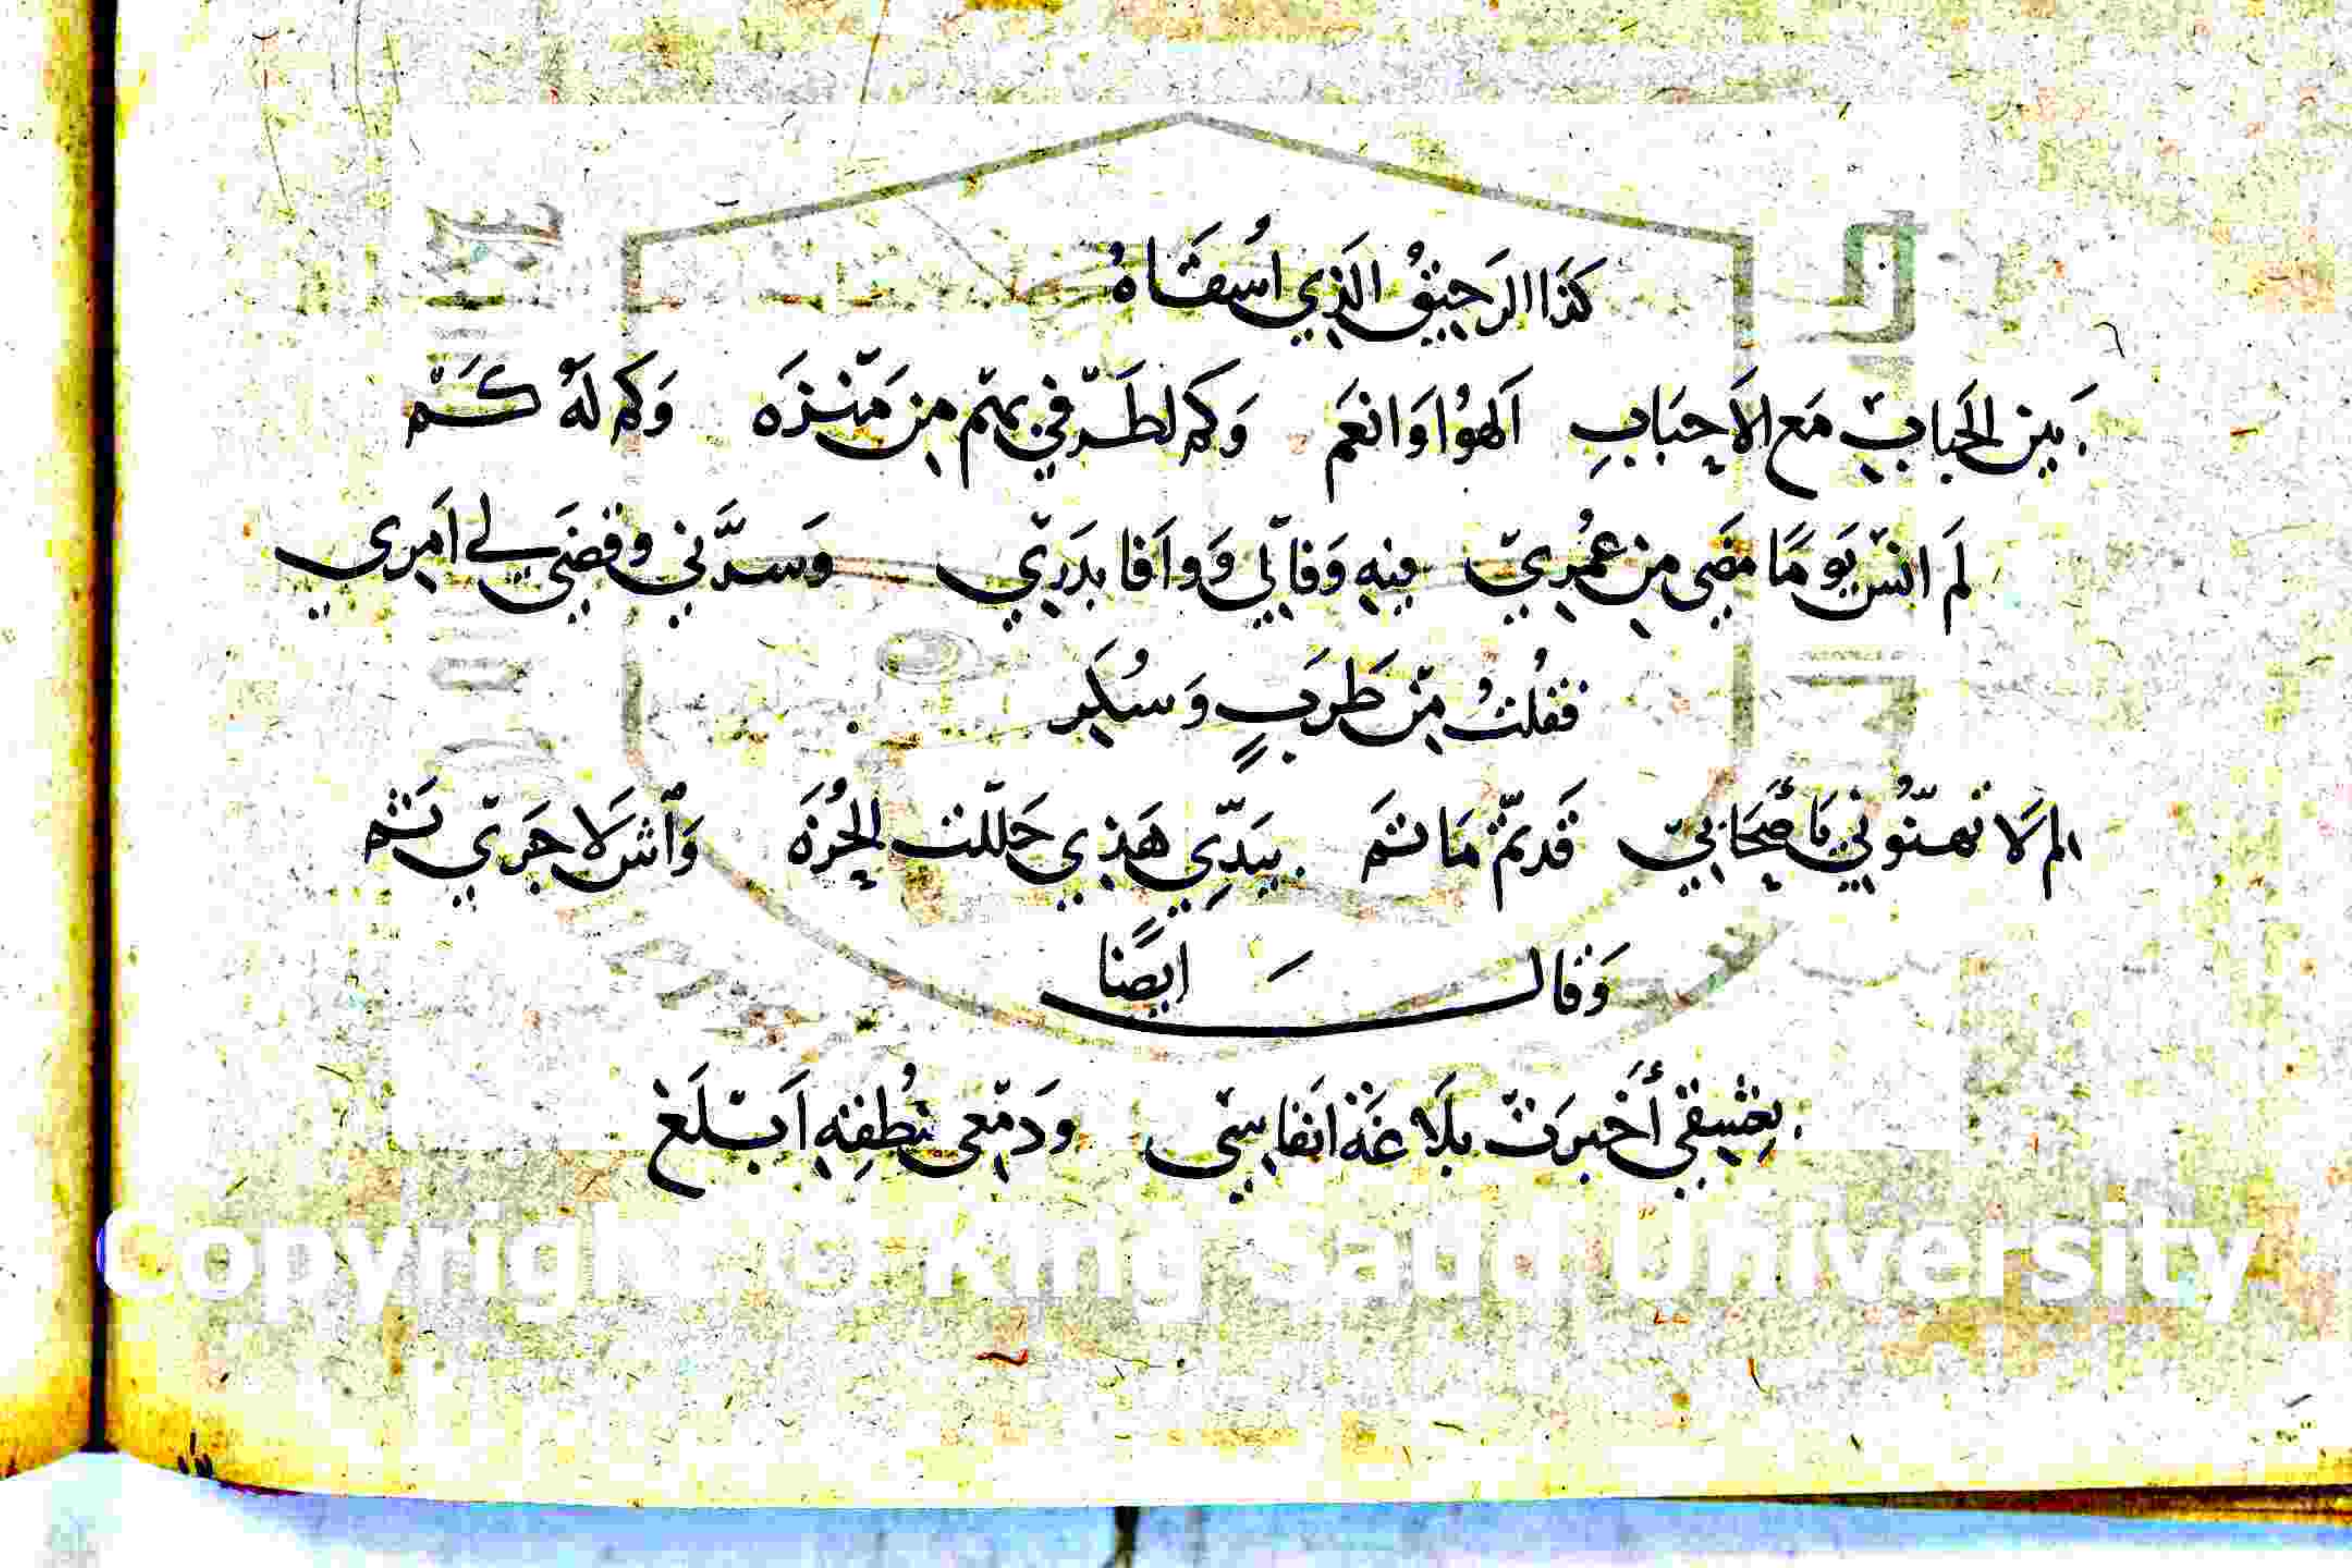 كَذَا الرَحِيقُ الَذِي اُسقَاهُ
بَين الحَبابْ مَع الاَحِبَابِ اَلهوْا وَانعَم وَكم لطَرْفي يمّم مِن مَنْزَه وَكم لَهُ كَمْ
لَم انسَ يَومًا مَضَى مِن عُمْرِي فِيهِ وَفَا لِي وَوافَا بدَرِي وَسرَّني وقضَى لي اَمرِي
فقُلتُ مِن طَرَبٍ وَسُكرِ
لم لَا تهنّوني يَا صِحَابي قَد تمّ مَا تم بيَدِّي هَذِي حَللت الحُزَه وَاش لَا جَرَي تَم
وَقال اَيضًا
بِعشقي أَخبرَتْ بلَاغَة اَنفاسِي ودَمعِي بنُطفِهِ اَبْلَغ
Copyright © King Saud University